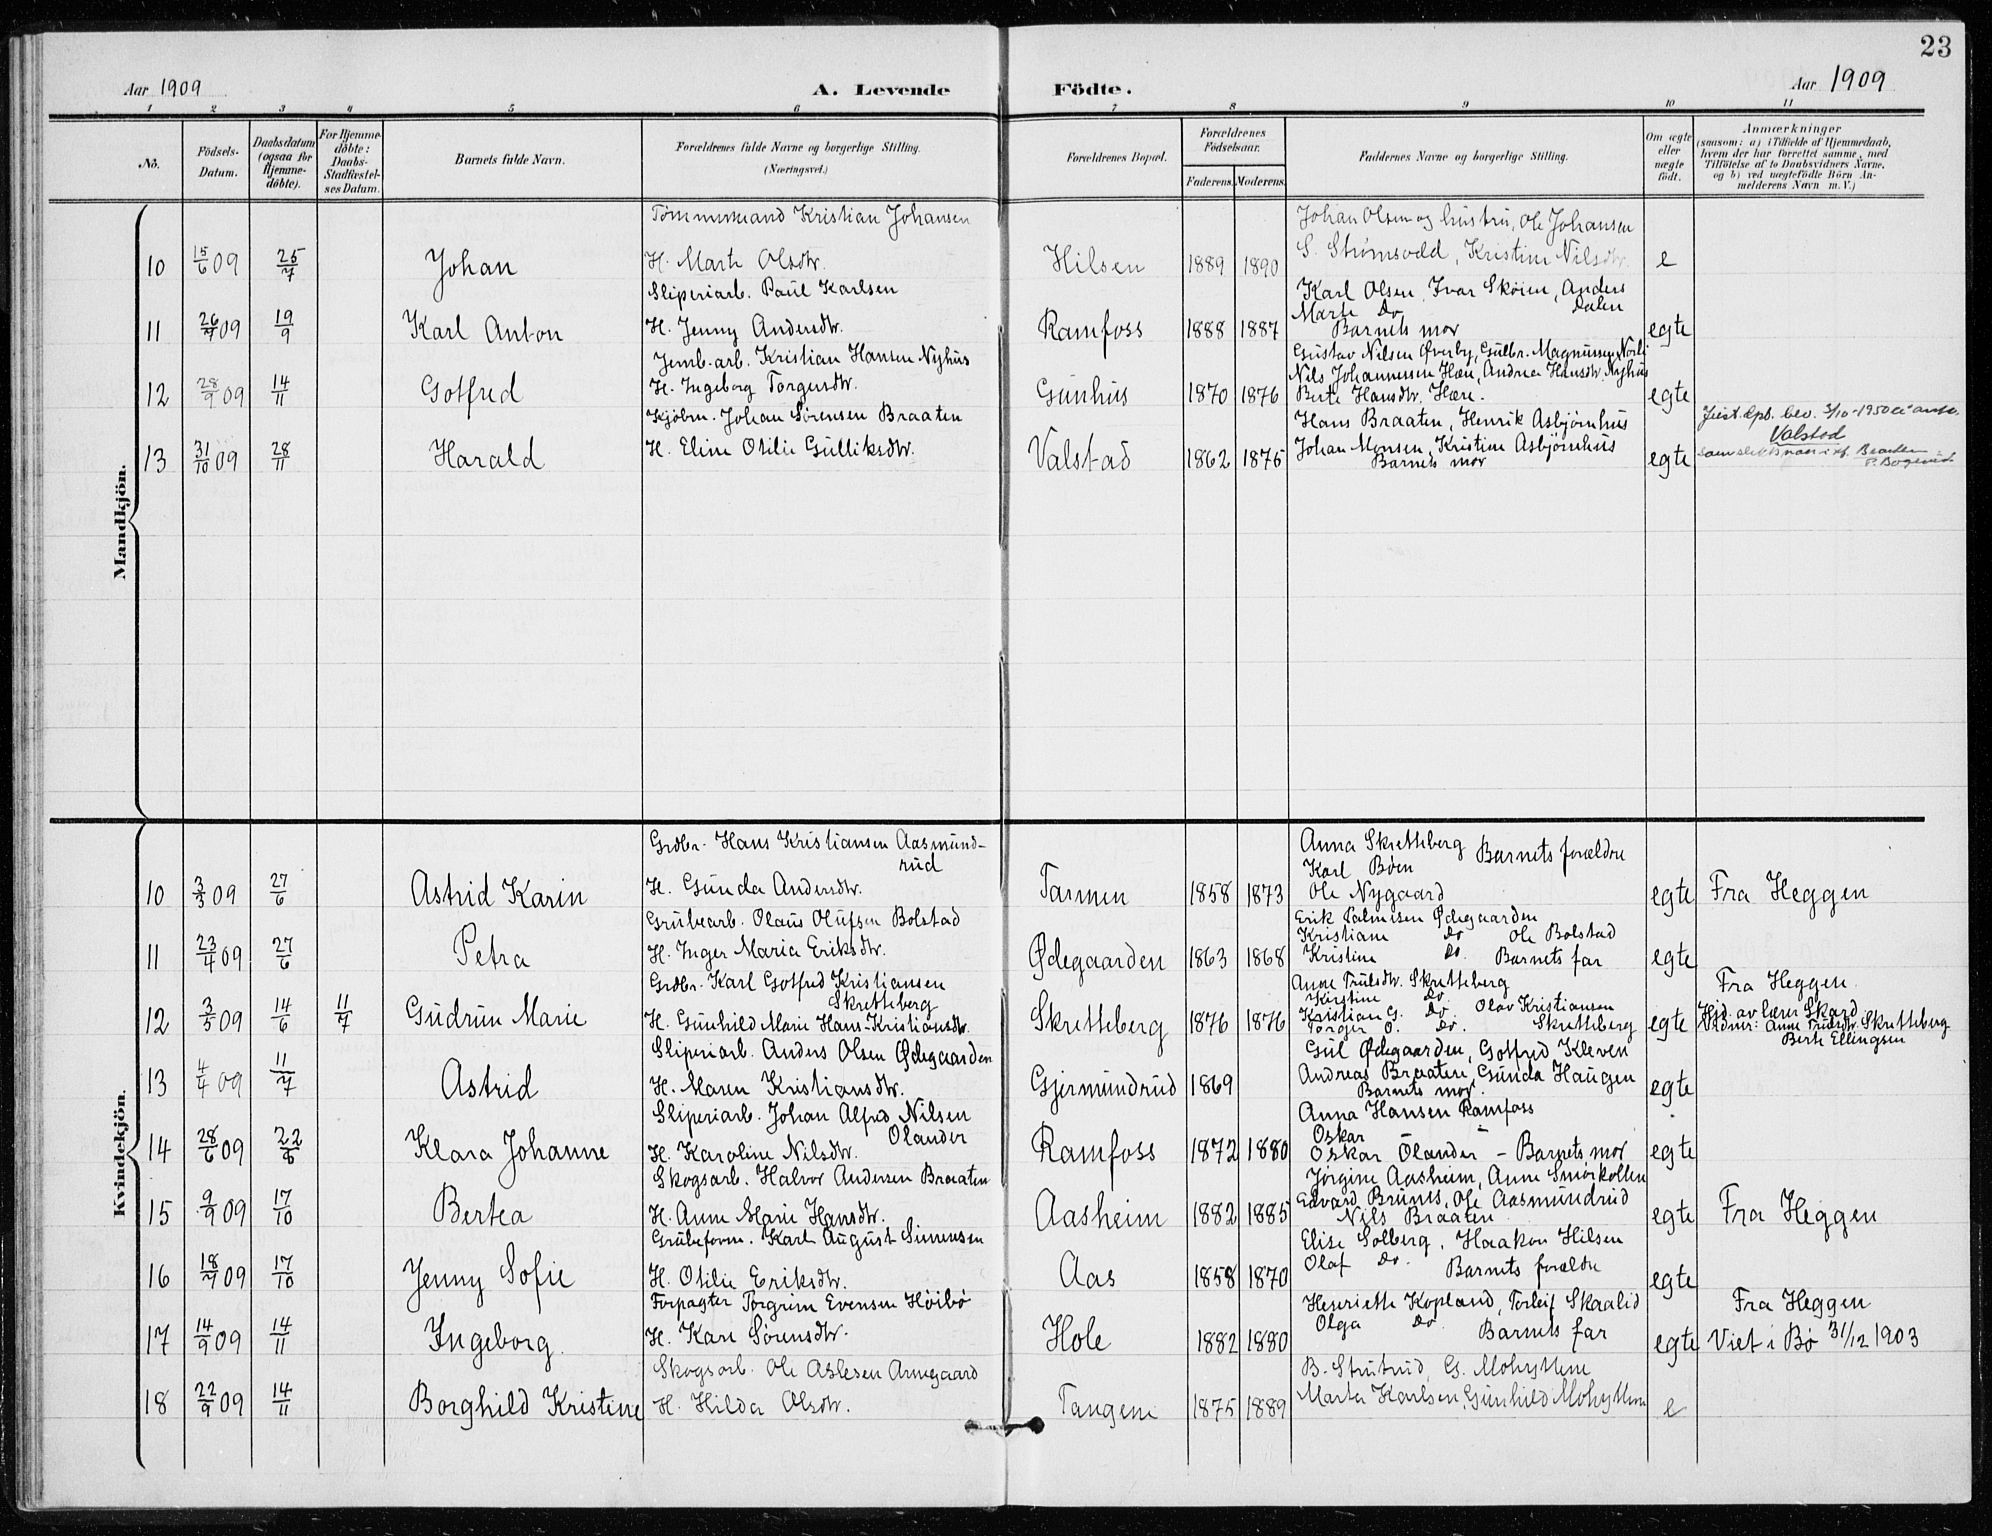 23
Aar 1909
A. Levende Födte.
Aar 1909
1 2 3 4 5 6 7 8 9 10 11
No.
Födsels-Datum.
Daabsdatum (ogsaa for Hjemme-döbte).
For Hjemme-döbte: Daabs-Stadfæstel-ses Datum.
Barnets fulde Navn.
Forældrenes fulde Navne og borgerlige Stilling.
(Næringsvei.)
Forældrenes Bopæl.
Forældrenes Födselsaar.
Faderens. Moderens.
Faddernes Navne og borgerlige Stilling.
Om ægte eller uægte födt.
Anmærkninger
(saasom: a) i Tilfælde af Hjemmedaab,
hvem der har forrettet samme, med
Tilföielse af to Daabsvidners Navne,
og b) ved uægtefödte Börn An-
melderens Navn m. V.)
Mandkjön.
Tømmermand Kristian Johansen Johan Olsen og hustru, Ole Johansen
10 15/6 09 25/7 Johan H. Marte Olsdtr. Hilsen 1889 1890 S. Strømsodd, Kristine Nilsdtr. e
Sliperiarb. Paul Karlsen Karl Olsen, Ivar Skøien, Anders Dalen
Marte Do
11 26/7 09 19/9 Karl Anton H. Jenny Andersdtr. Ramfoss 1888 1887 Barnets mor egte
Jernb. arb. Kristian Hansen Nyhus Gustav Nilsen Øverby, Gulbr. Magnussen Nørli
Nils Johannessen Hære, Andrea Hansdtr. Nyhus
12 28/9 09 14/11 Gotfred H. Ingeborg Torgersdtr. Gunhus 1870 1876 Berte Hansdtr. Hære. egte
Kjøbm. Johan Sørensen Braaten Hans Braaten, Henrik Asbjørnhus
Just. dpt. bev. 3/10-1950 å anta
Valstad
13 31/10 09 28/11 Harald H. Eline Otilie Gulliksdtr. Valstad 1862 1875 Johan Monsen, Kristine Asbjørnhus egte som slektsnavn
Barnets mor
Kvindekjön.
Grdbr. Hans Kristiansen Aasmund-rud Anna Skretteberg Barnets forældre
Karl Bøen
10 3/3 09 27/6 Astrid Karin H. Gunda Andersdtr. Tarmen 1858 1873 Ole Nygaard egte Fra Heggen
Grubearb. Olaus Olufsen Bolstad Erik Palmesen Ødegaarden
Kristiane Do Ole Bolstad
11 23/4 09 27/6 Petra H. Inger Maria Eriksdtr. Ødegaarden 1863 1868 Kristine Do. Barnets far egte
Grdbr. Karl Gotfred Kristiansen Skretteberg Anne Trulsdtr. Skretteberg Fra Heggen
Kirstine Do.
Kristian G. Do. Olav Kristiansen Hjd. av lærer Skard
12 3/5 09 14/6 11/7 Gudrun Marie H. Gunhild Marie Hans-Kristiansdtr. Skretteberg 1876 1876 Torger O. Do. Skretteberg egte Vidner: Anne Trulsdtr. Skretteberg
Berte Ellingsen
Sliperiarb. Anders Olsen Ødegaarden Gul Ødegaarden, Gotfred Kleven
13 4/4 09 11/7 Astrid H. Maren Kristiansdtr. Gjermundrud 1869 Andreas Braatene, Gunda Haugen egte
Barnets mor
Sliperiarb. Johan Alfred Nilsen Olander Anna Hansen Ramfoss
Oskar -
14 28/6 09 22/8 Klara Johanne H. Karoline Nilsdtr. Ramfoss 1872 1880 Oskar Ölander - Barnets mor egte
Skogsarb. Halvor Andersen Braaten Jørgine Aasheim, Anne Smørkollen
Edvard Brunes, Ole Aasmundrud
15 9/9 09 17/10 Bertea H. Anne Marie Hansdtr. Aasheim 1882 1885 Nils Braaten egte Fra Heggen
Grubeform. Karl August Simensen Elise Solberg, Haakon Hilsen
Olaf Do.
16 18/7 09 17/10 Jenny Sofie H. Otilie Eriksdtr. Aas 1858 1870 Barnets forældre egte
Forpagter Torgrim Evensen Høibø Henriette Kopland, Torleif Skaalid Fra Heggen
Olga Do.
17 14/9 09 14/11 Ingeborg. H. Kari Sørensdtr. Hole 1882 1880 Barnets far egte Viet i Bø 31/12 1903
Skogsarb. Ole Aslesen Arnegaard B. Strutrud, G. Mohyttene
18 22/9 09 14/11 Borghild Kristine H. Hilda Olsdtr. Tangene 1875 1889 Marta Karlsen, Gunhild Mohyttene e